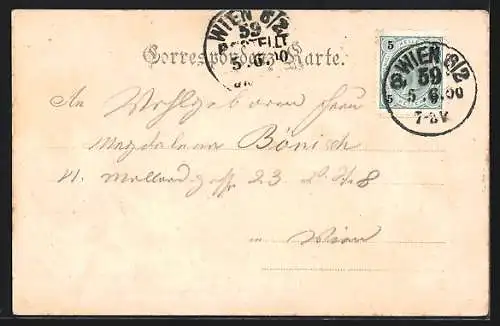 WIEN 6/2
59
BESTELLT
5.6.00
Correspondenz-Karte.
5
5
WIEN 6/2
59
5.6.00
7-8V
An Wohlgeboren Frau
Magdalena Bönisch
VI. Mollardgasse 23
in Wien